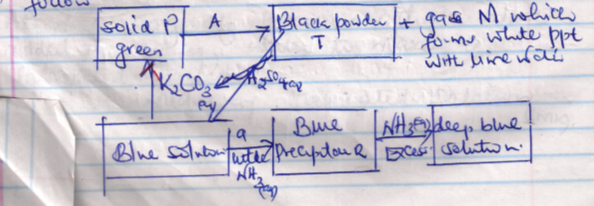 follow
solid P
green
A
Black powder
T
+ gas M which
forms white ppt
with lime
K2CO3
(aq)
H2SO4(aq)
Blue solution
a
little
NH3
(aq)
Blue
Precipitate R
NH3(aq)
Excess
deep blue
solution.